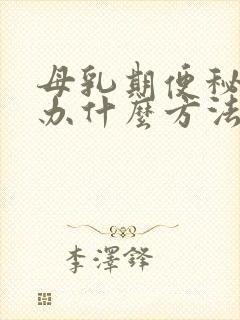 母乳期便秘
办什麼方法
李澤鋒